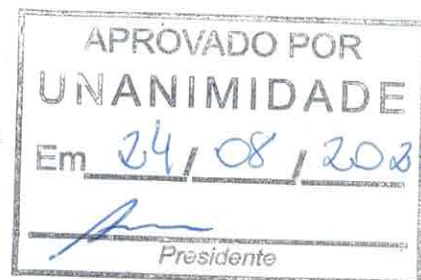 APROVADO POR
UNANIMIDADE
Em 24 / 08 /
Presidente